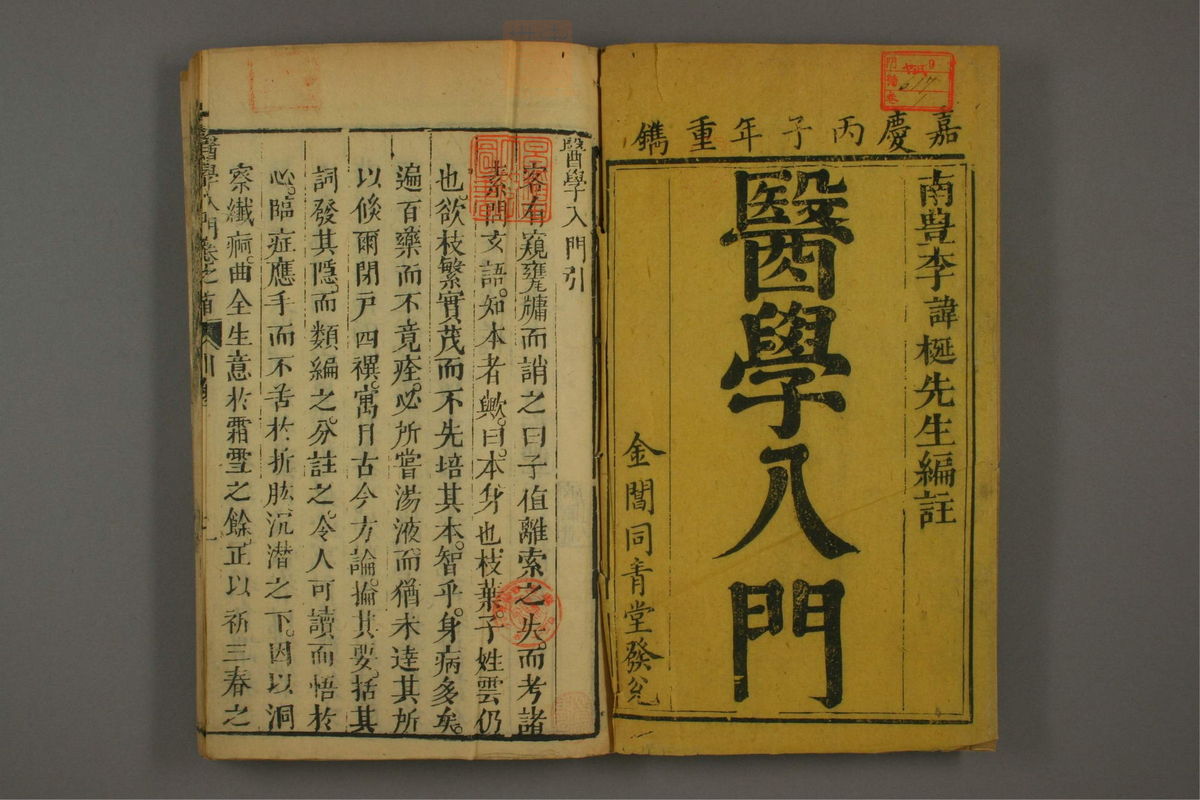 嘉慶丙子年重鐫
南豊李諱梴先生編註
醫學入門
金閶同青堂發兌
醫學入門引
客有窺甕牖而誚之曰子值離索之失而考諸
素問玄語。知本者歟。曰。本身也。枝葉。子姓雲仍
也。欲枝繁實茂而不先培其本。智乎。身病多矣。
遍百藥而不竟痊。必所嘗湯液而猶未達其所
以。倏爾閉戸四禩。寓目古今方論。掄其要。括其
詞發其隱。而類編之。分註之。令人可讀而悟於
心。臨症應手而不苦於折肱沉潛之下。因以洞
察纖痾。曲全生意於霜雪之餘。正以祈三春之
醫學入門卷之首